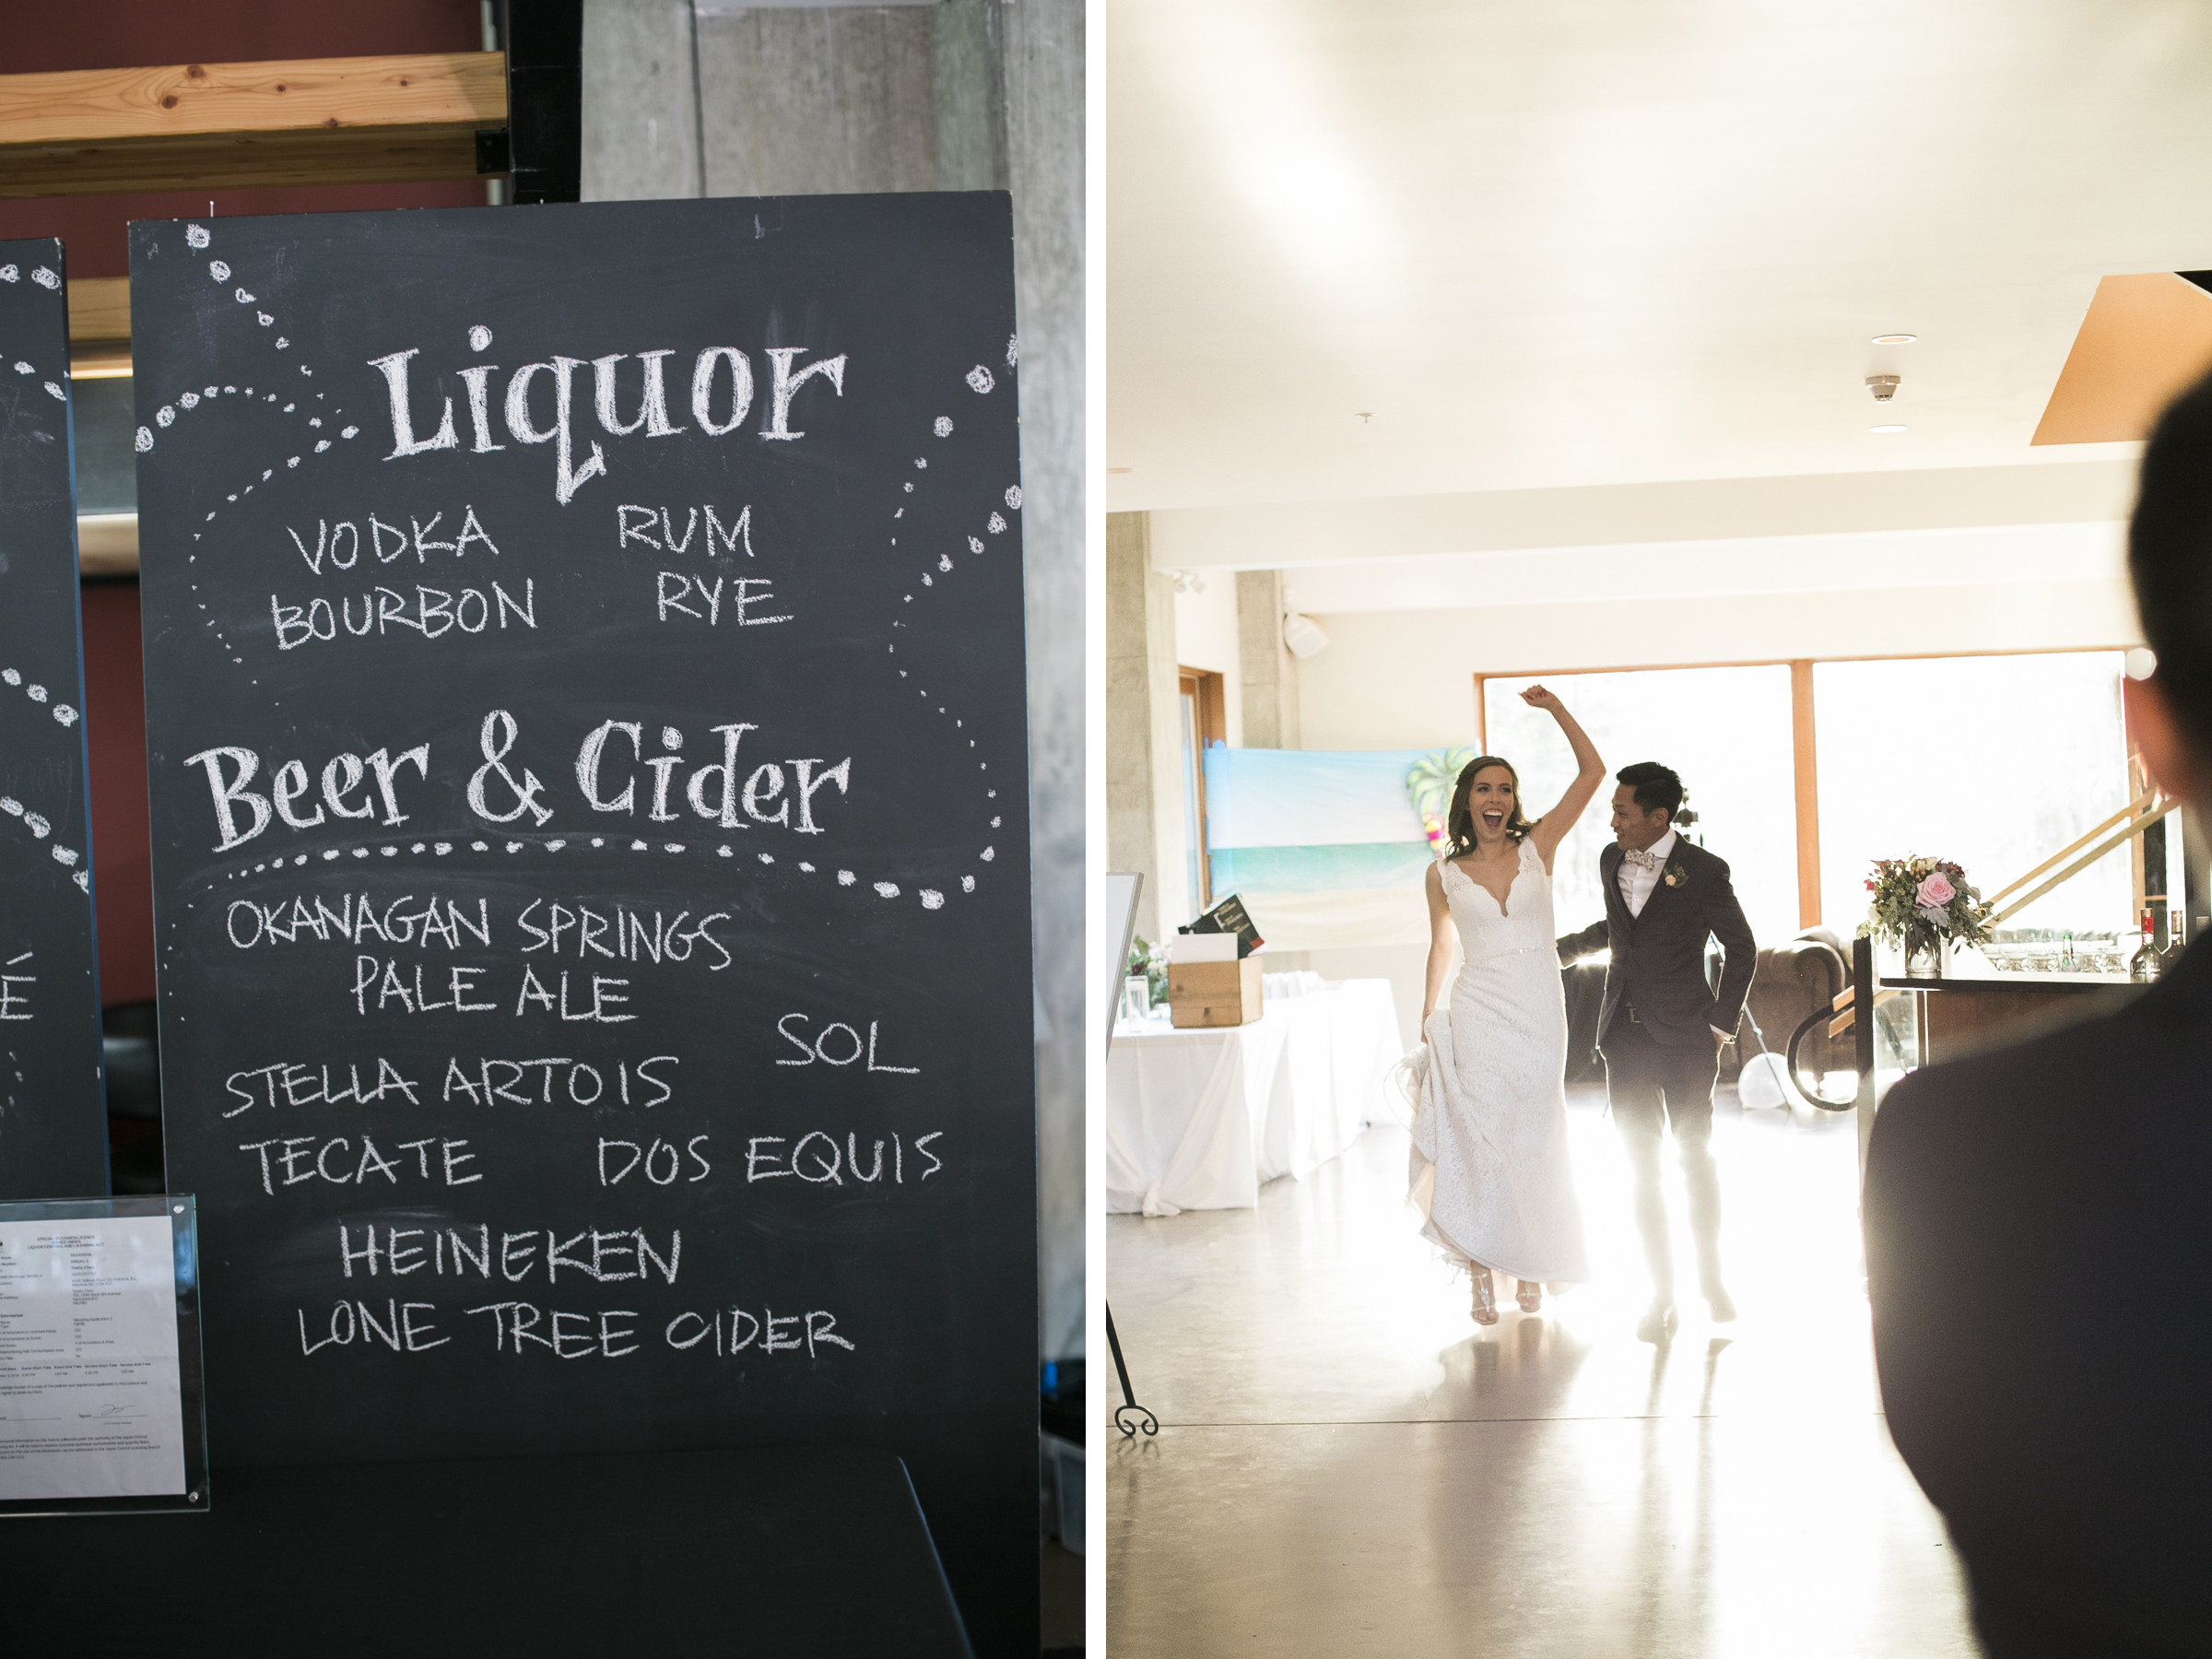 Liquor
VODKA RUM
BOURBON RYE
Beer & Cider
OKANAGAN SPRINGS
PALE ALE
SOL
STELLA ARTOIS
TECATE DOS EQUIS
HEINEKEN
LONE TREE CIDER
É